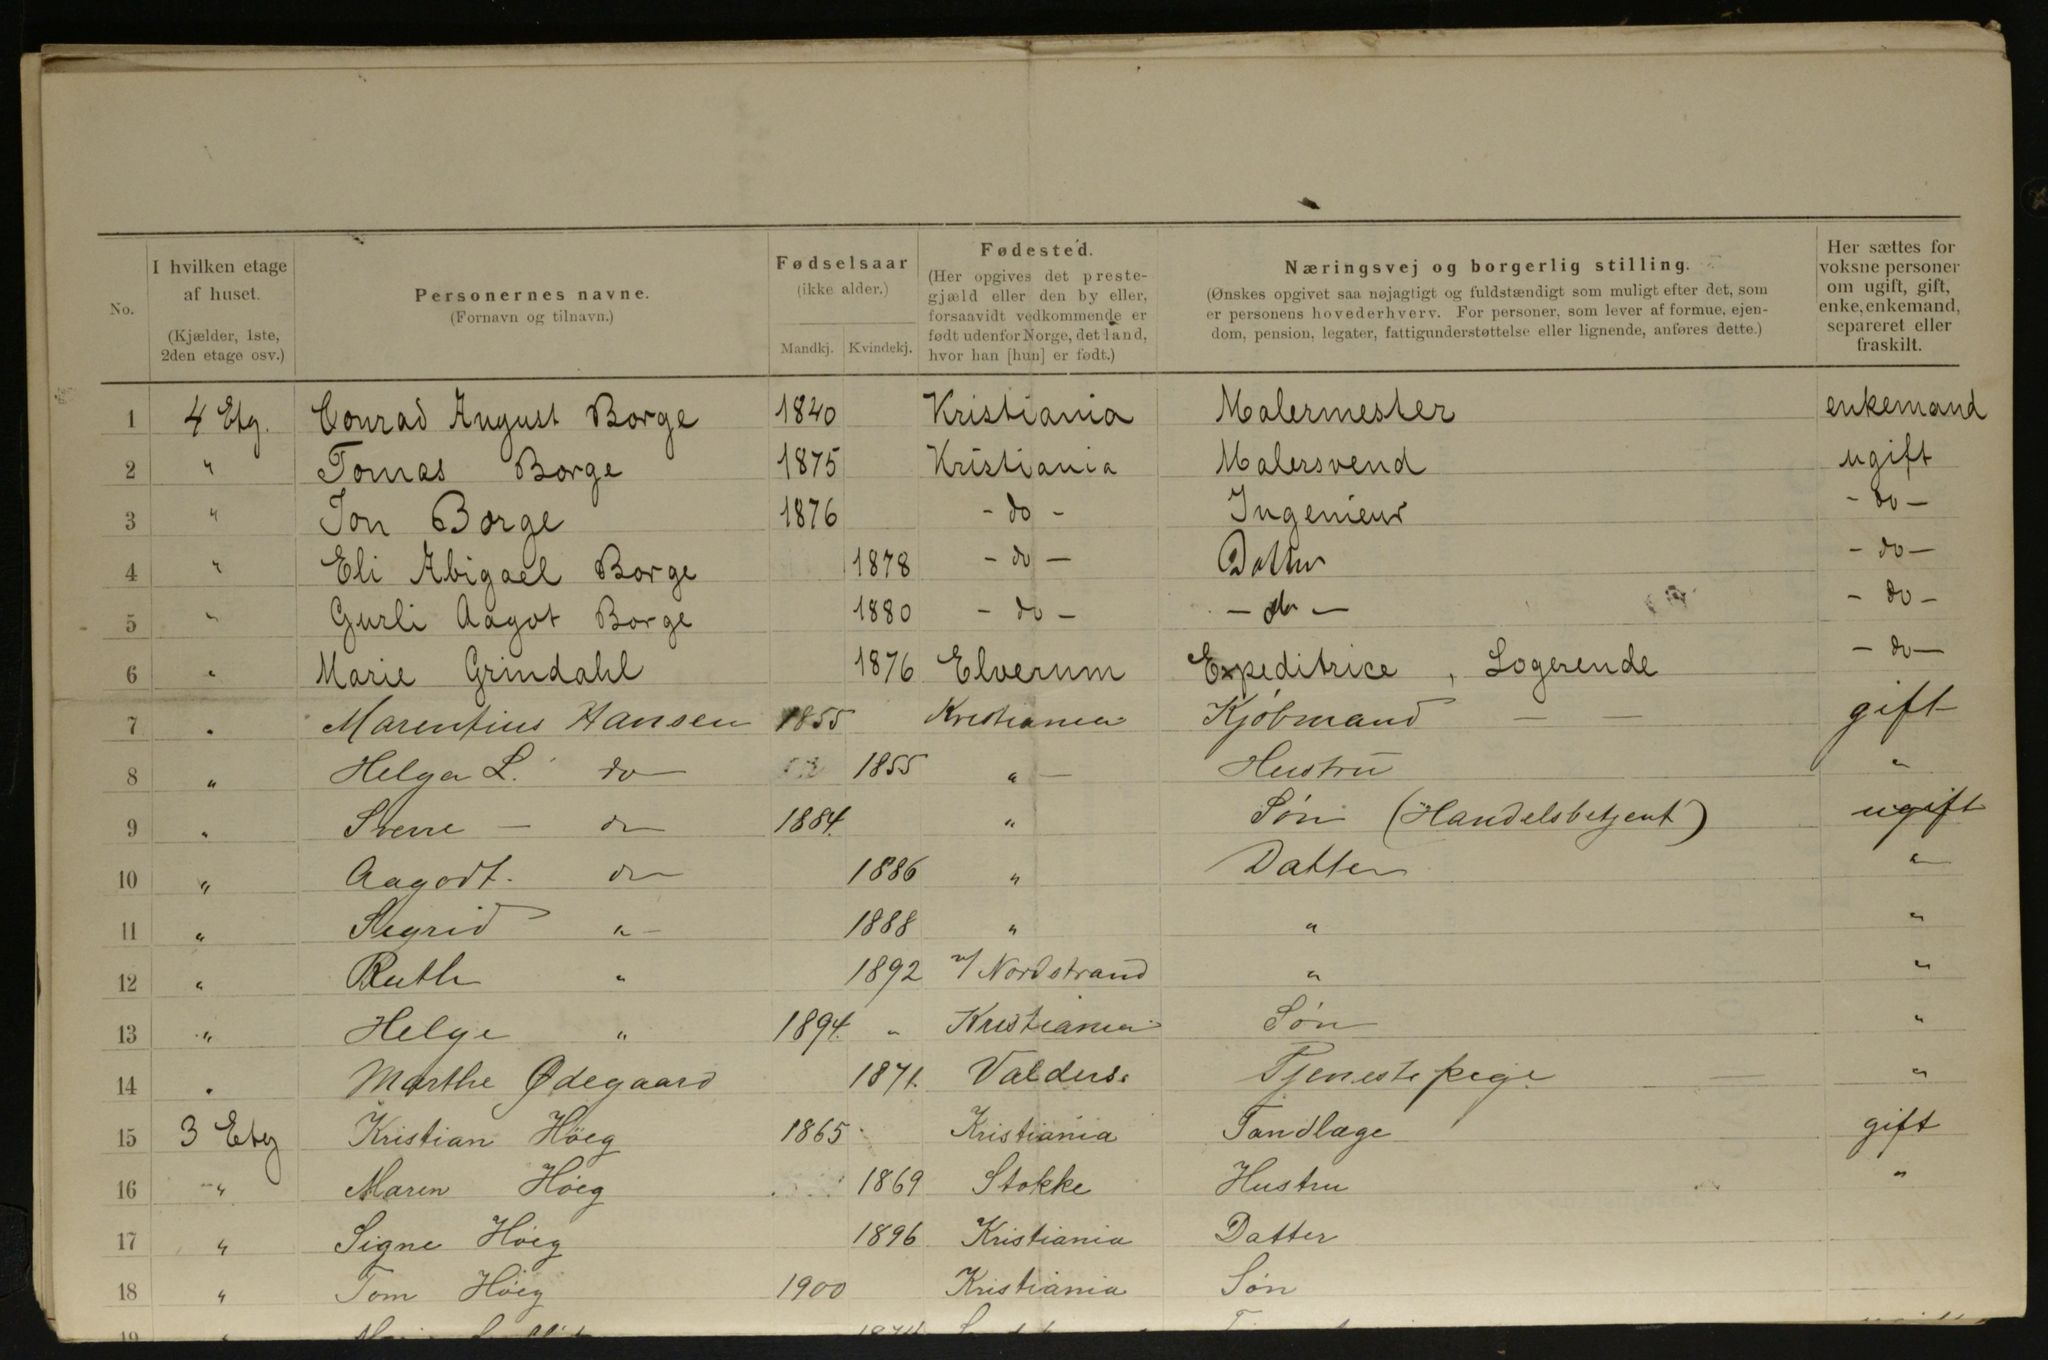 No. | I hvilken etage af huset. (Kjælder, 1ste, 2den etage osv.) | Personernes navne. (Fornavn og tilnavn.) | Fødselsaar (ikke alder.) Mandkj. | Kvindekj. | Fødested. (Her opgives det prestegjæld eller den by eller, forsaavidt vedkommende er født udenfor Norge, det land, hvor han [hun] er født.) | Næringsvej og borgerlig stilling. (Ønskes opgivet saa nøjagtigt og fuldstændigt som muligt efter det, som er personens hovederhverv. For personer, som lever af formue, ejendom, pension, legater, fattigunderstøttelse eller lignende, anføres dette.) | Her sættes for voksne personer om ugift, gift, enke, enkemand, separeret eller fraskilt.
1 4 Etg. Conrad August Borge 1840 Kristiania Malermester enkemand
2 " Tomas Borge 1875 Kristiania Malersvend ugift
3 " Jon Borge 1876 - do - Ingenieur - do -
4 " Eli Abigael Borge 1878 - do - Datter - do -
5 " Gurli Aagot Borge 1880 - do - - do - - do -
6 " Marie Grindahl 1876 Elverum Expeditrice, Logerende - do -
7 " Marentius Hansen 1855 Kristiania Kjöbmand — — gift
8 " Helga L. do 1855 " — Hustru "
9 " Sverre — do 1884. " Søn (Handelsbetjent) ugift
10 " Aagodt. do 1886 " Datter "
11 " Sigrid " — 1888 " " "
12 " Ruth " 1892 v/ Nordstrand " "
13 " Helge " 1894. " Kristiania Søn "
14 " Marthe Ødegaard 1871. Valders. Tjenestepige "
15 3 Etg Kristian Höeg 1865 Kristiania Tandlæge gift
16 " Maren Höeg 1869 Stokke Hustru "
17 " Signe Höeg 1896 Kristiania Datter
18 " Tom Höeg 1900 Kristiania Søn
19